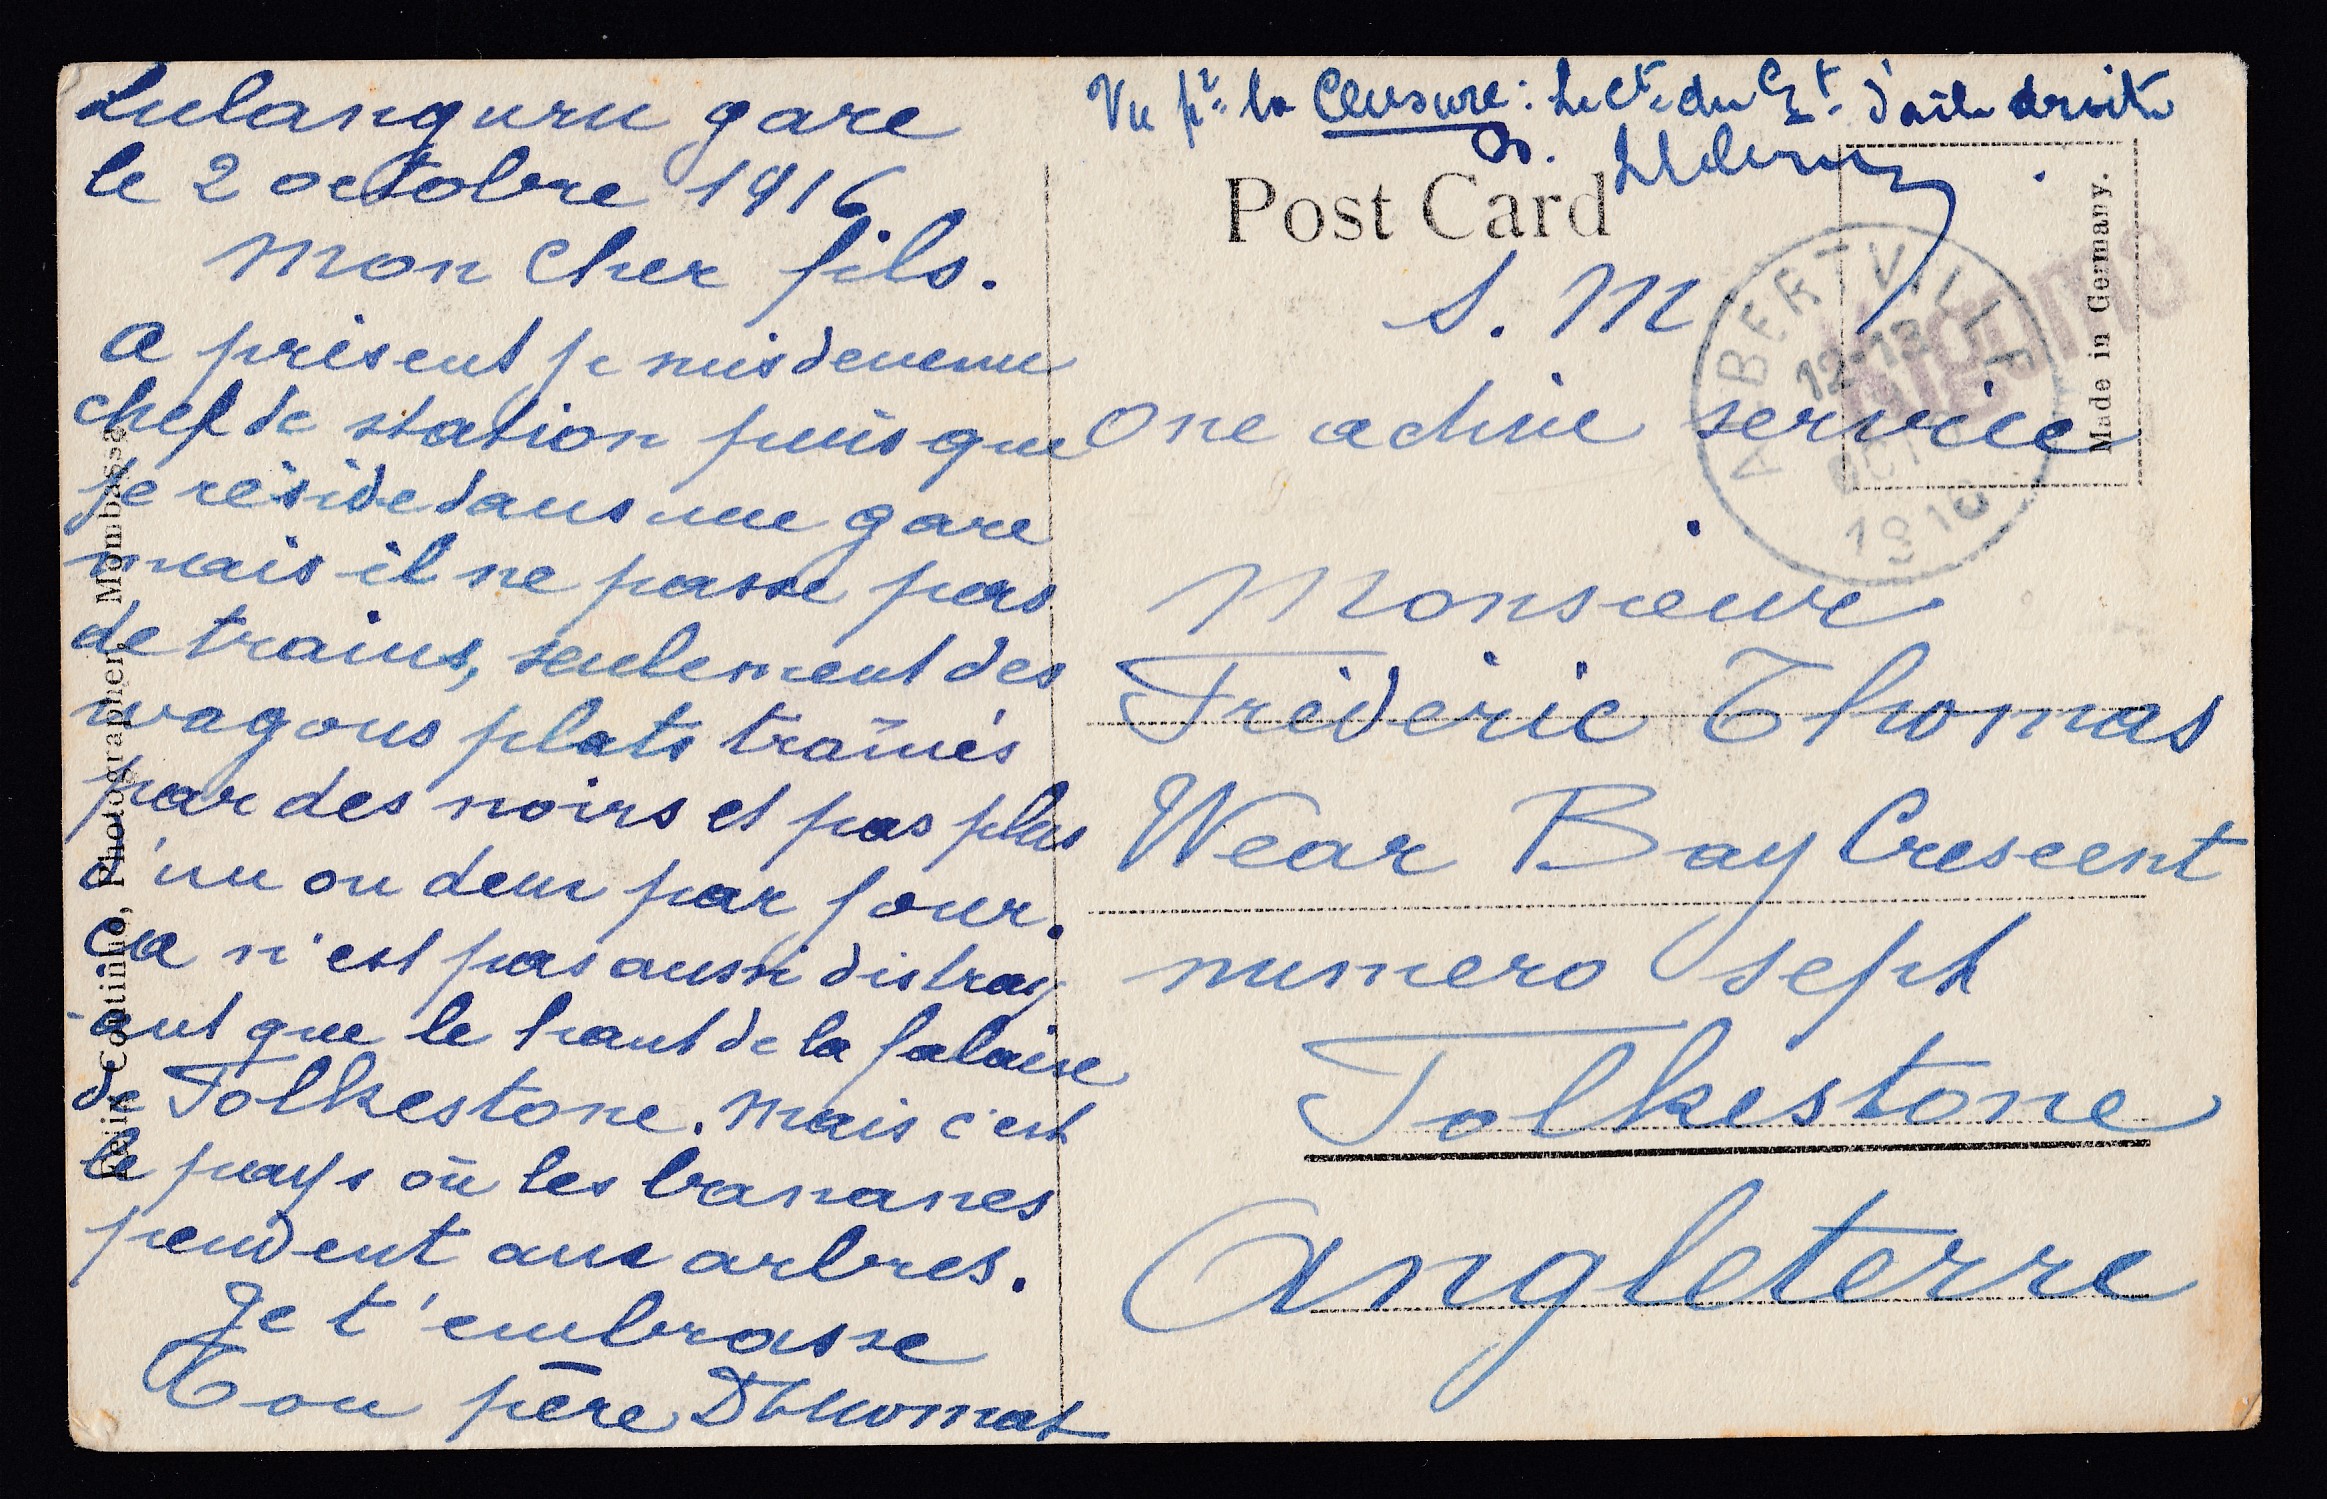 Lulanguru gare
le 2 octobre 1916
Mon cher fils.
A présent je suis devenu
chef de station puisque
je réside dans une gare
mais il ne passe pas
de trains, seulement des
wagons plats traînés
par des noirs et pas plus
d'un ou deux par jour.
ca n'est pas aussi distray-
-ant que le haut de la falaise
de Folkestone. Mais c'est
le pays où les bananes
pendent aux arbres.
Je t'embrasse
Ton père DThomas
Coutinho, Photographer, Mombassa
Vu pr. la Censure: Le Ct. du Gt. d'aile droite
Post Card
S. M
One active service
Made in Germany.
ALBERTVILLE
12-13
OCT
1916
Kigoma
Monsieur
Fréderic Thomas
Wear Bay Crescent
numero sept
Folkestone
Angleterre